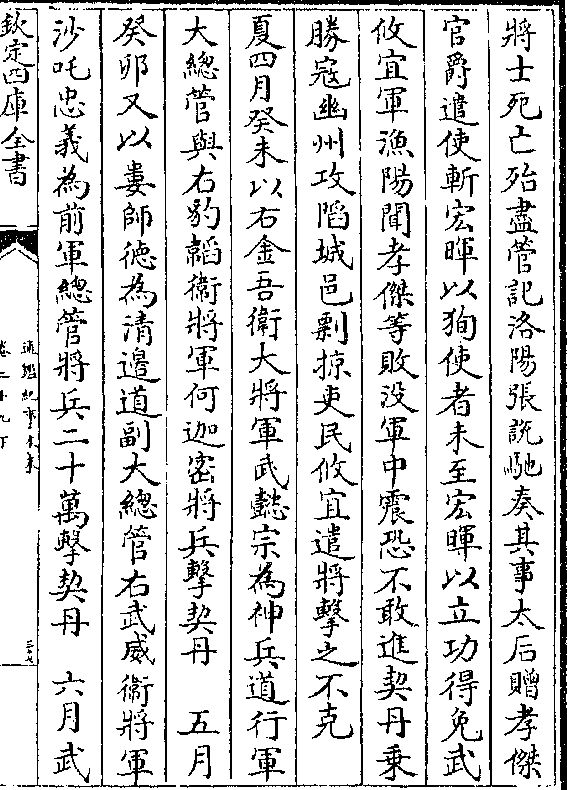 將士死亡殆盡管記洛陽張說馳奏其事太后贈孝傑
官爵遣使斬宏暉以狥使者未至宏暉以立功得免武
攸宜軍漁陽聞孝傑等敗没軍中震恐不敢進契丹乗
勝寇幽州攻陷城邑剽掠吏民攸宜遣將擊之不克
夏四月癸未以右金吾衛大將軍武懿宗為神兵道行軍
大總管與右豹韜衛將軍何迦密將兵擊契丹　五月
癸卯又以婁師徳為清邊道副大總管右武威衛將軍
沙吒忠義為前軍總管將兵二十萬擊契丹　六月武
欽定四庫全書
通鑑紀事本末
卷二十九下
三十七